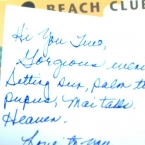 BEACH CLUB
Hi You Two,
Gorgeous
Setting Sun, Palm
Pupus, Mai Tais
Heaven.
Love to you